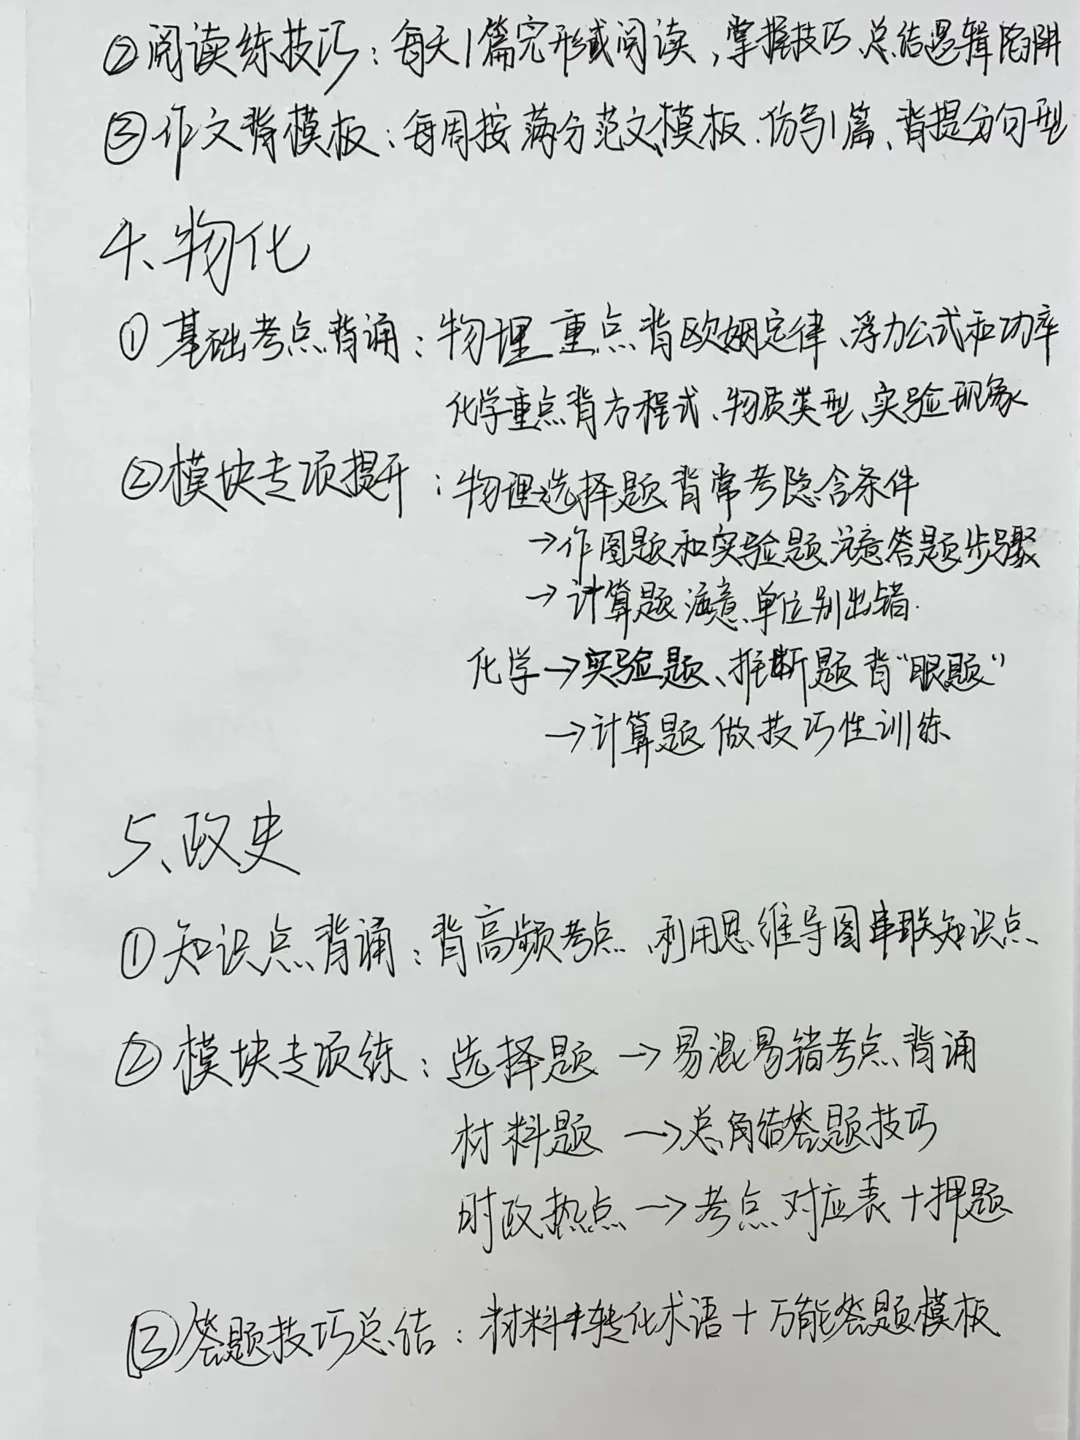 ②阅读练技巧：每天1篇完形或阅读，掌握技巧、总结逻辑陷阱
③作文背模板：每周按满分范文模板.仿写1篇、背提分句型
4、物化
①基础考点背诵：物理重点背欧姆定律、浮力公式和功率
化学重点背方程式、物质类型、实验现象
②模块专项提升：物理选择题背常考隐含条件
→作图题和实验题注意答题步骤
→计算题注意单位别出错.
化学→实验题、推断题背“眼题”
→计算题做技巧性训练
5、政史
①知识点背诵：背高频考点、利用思维导图串联知识点
②模块专项练：选择题→易混易错考点背诵
材料题→总结答题技巧
时政热点→考点对应表+押题
③答题技巧总结：材料+转化术语+万能答题模板